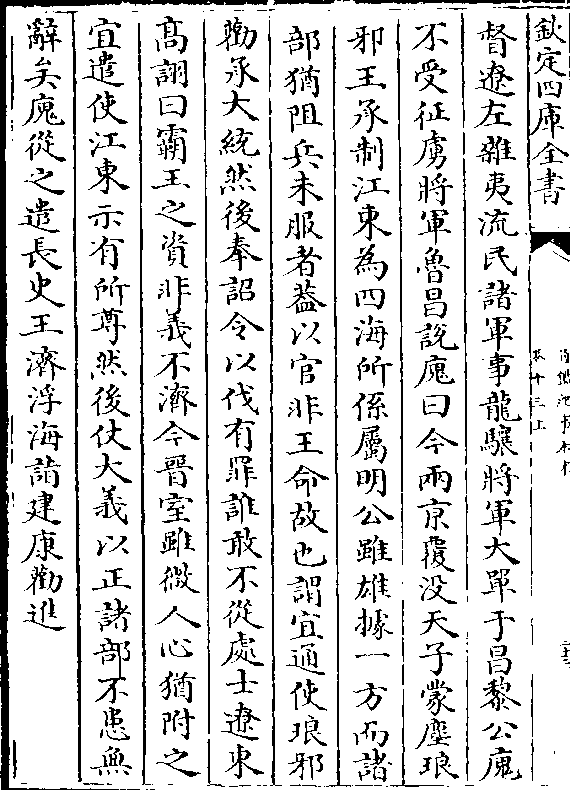 欽定四庫全書
督遼左雜夷流民諸軍事龍驤將軍大單于昌黎公廆
不受征虜將軍魯昌說廆曰今兩京覆没天子蒙塵琅
邪王承制江東為四海所係屬明公雖雄據一方而諸
部猶阻兵未服者葢以官非王命故也謂宜通使琅邪
勸承大統然後奉詔令以伐有罪誰敢不從處士遼東
髙詡曰霸王之資非義不濟今晉室雖微人心猶附之
宜遣使江東示有所尊然後仗大義以正諸部不患無
辭矣廆從之遣長史王濟浮海詣建康勸進
卷十三上